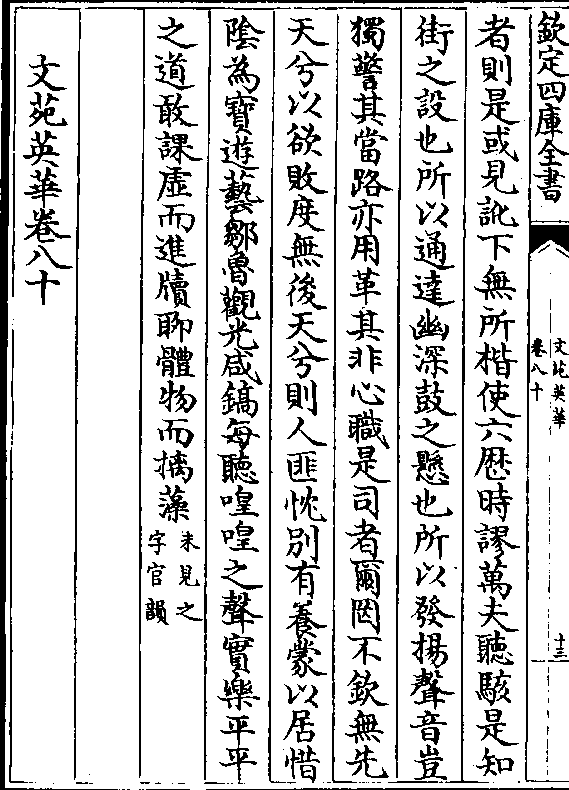 欽定四庫全書
文苑英華
卷八十
十三
者則是或見訛下無所楷使六歴時謬萬夫聽駭是知
街之設也所以通達幽深鼓之懸也所以發揚聲音豈
獨警其當路亦用革其非心職是司者爾罔不欽無先
天兮以欲敗度無後天兮則人匪忱別有養蒙以居惜
陰為寶遊藝鄒魯觀光咸鎬每聽喤喤之聲實樂平平
之道敢課虛而進牘聊體物而摛藻未見之
字官韻
文苑英華卷八十